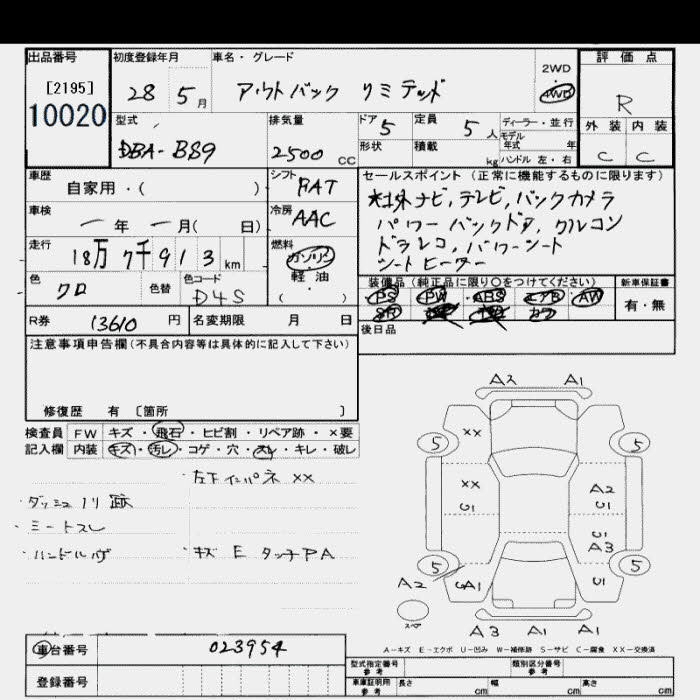 出品番号 初度登録年月 車名・グレード 2WD 評価点
[2195] 28 5月 アウトバック リミテッド 4WD R
10020 型式 排気量 ドア 定員 ディーラー・並行 外装 内装
DBA-BS9 2500 CC 5 5人 モデル年式 年 C C
形状 積載 kg ハンドル 左・右
車歴 シフト FAT セールスポイント (正常に機能するものに限ります)
自家用・( ) 社外ナビ,テレビ,バックカメラ
車検 冷房 AAC パワーバックドア,クルコン
ー年 ー月( 日) ドラレコ,パワーシート
走行 燃料 シートヒーター
18万7千913km ガソリン・軽油 ( )
色 色替 色コード 装備品 (純正品に限り〇をつけてください) 新車保証書
クロ D4S PS PW ABS エアB AW 有・無
SR カワ
R券 13610円 名変期限 月 日 後日品
注意事項申告欄(不具合内容等は具体的に記入して下さい)
修復歴 有 〔箇所 〕
検査員 FW キズ・飛石・ヒビ割・リペア跡・×要
記入欄 内装 キズ・汚レ・コゲ・穴・スレ・キレ・破レ
左下インパネ ××
・ダッシュノリ跡
・シートスレ
・ハンドルハゲ ・キズ E タッチPA
A2 A1
5 ×× 5
×× A2
U1 U1
A3
5 5
A2 A1 U1
スペア
A3 A1 A1
車台番号 023954
A-キズ E-エクボ U-凹み W-補修跡 S-サビ C-腐食 XX-交換済
登録番号 型式指定番号 参考 類別区分番号 参考
車庫証明用 参考 長さ cm 幅 cm 高さ cm